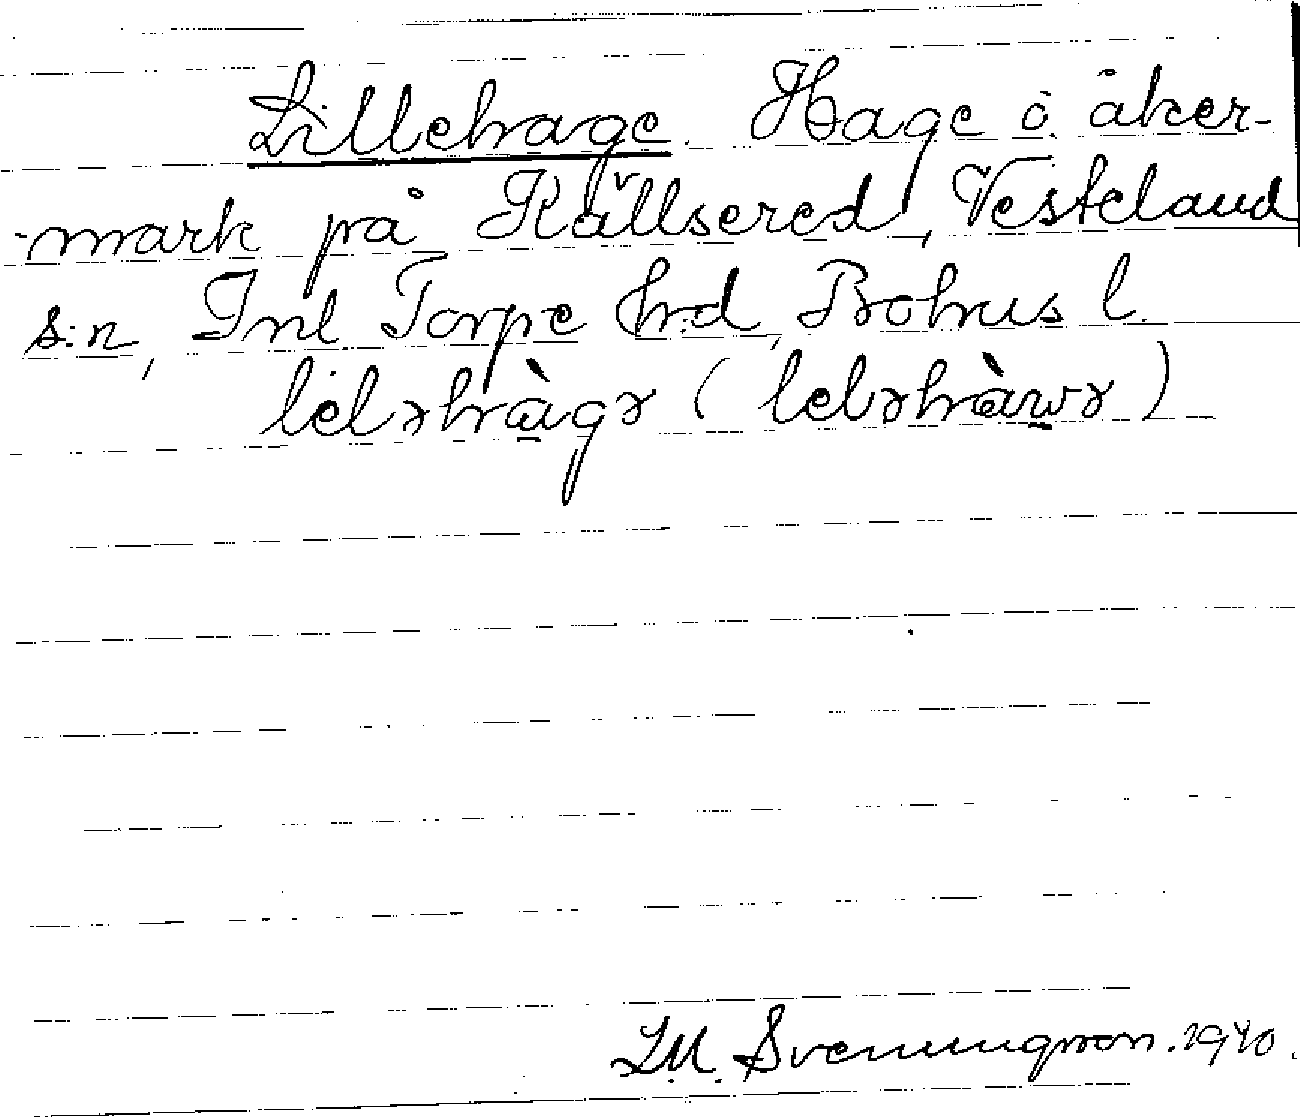 Lillehage. Hage o. åker-
-mark på Källsered, Vesteland
s:n, Inl Torpe hrd, Bohus l.
lelɘhàgɘ (lelɘhàwɘ)
L.M. Svenungsson. 1940.